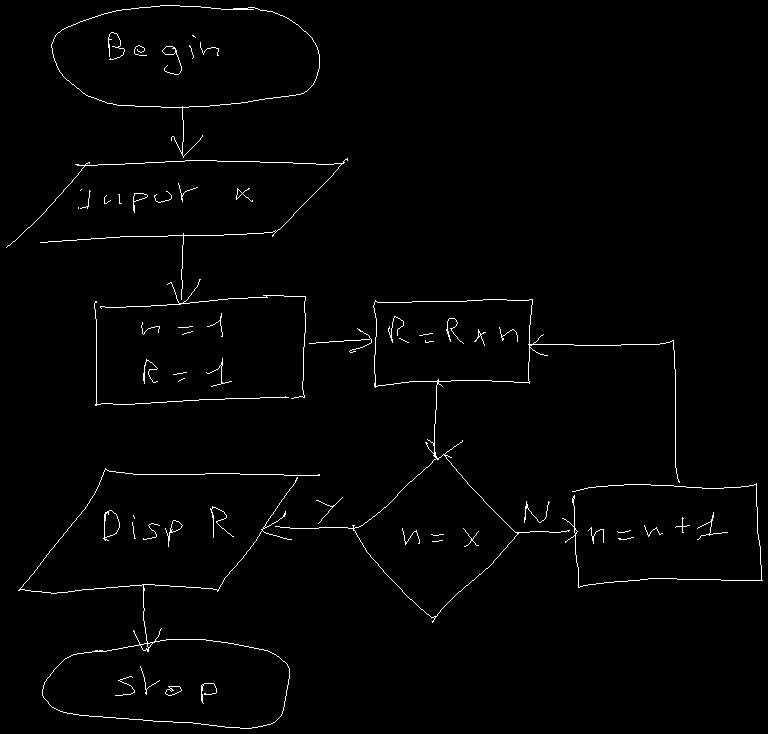 Begin
Input x
n = 1
R = 1
R = R x n
n = x
N
n = n + 1
Y
Disp R
stop